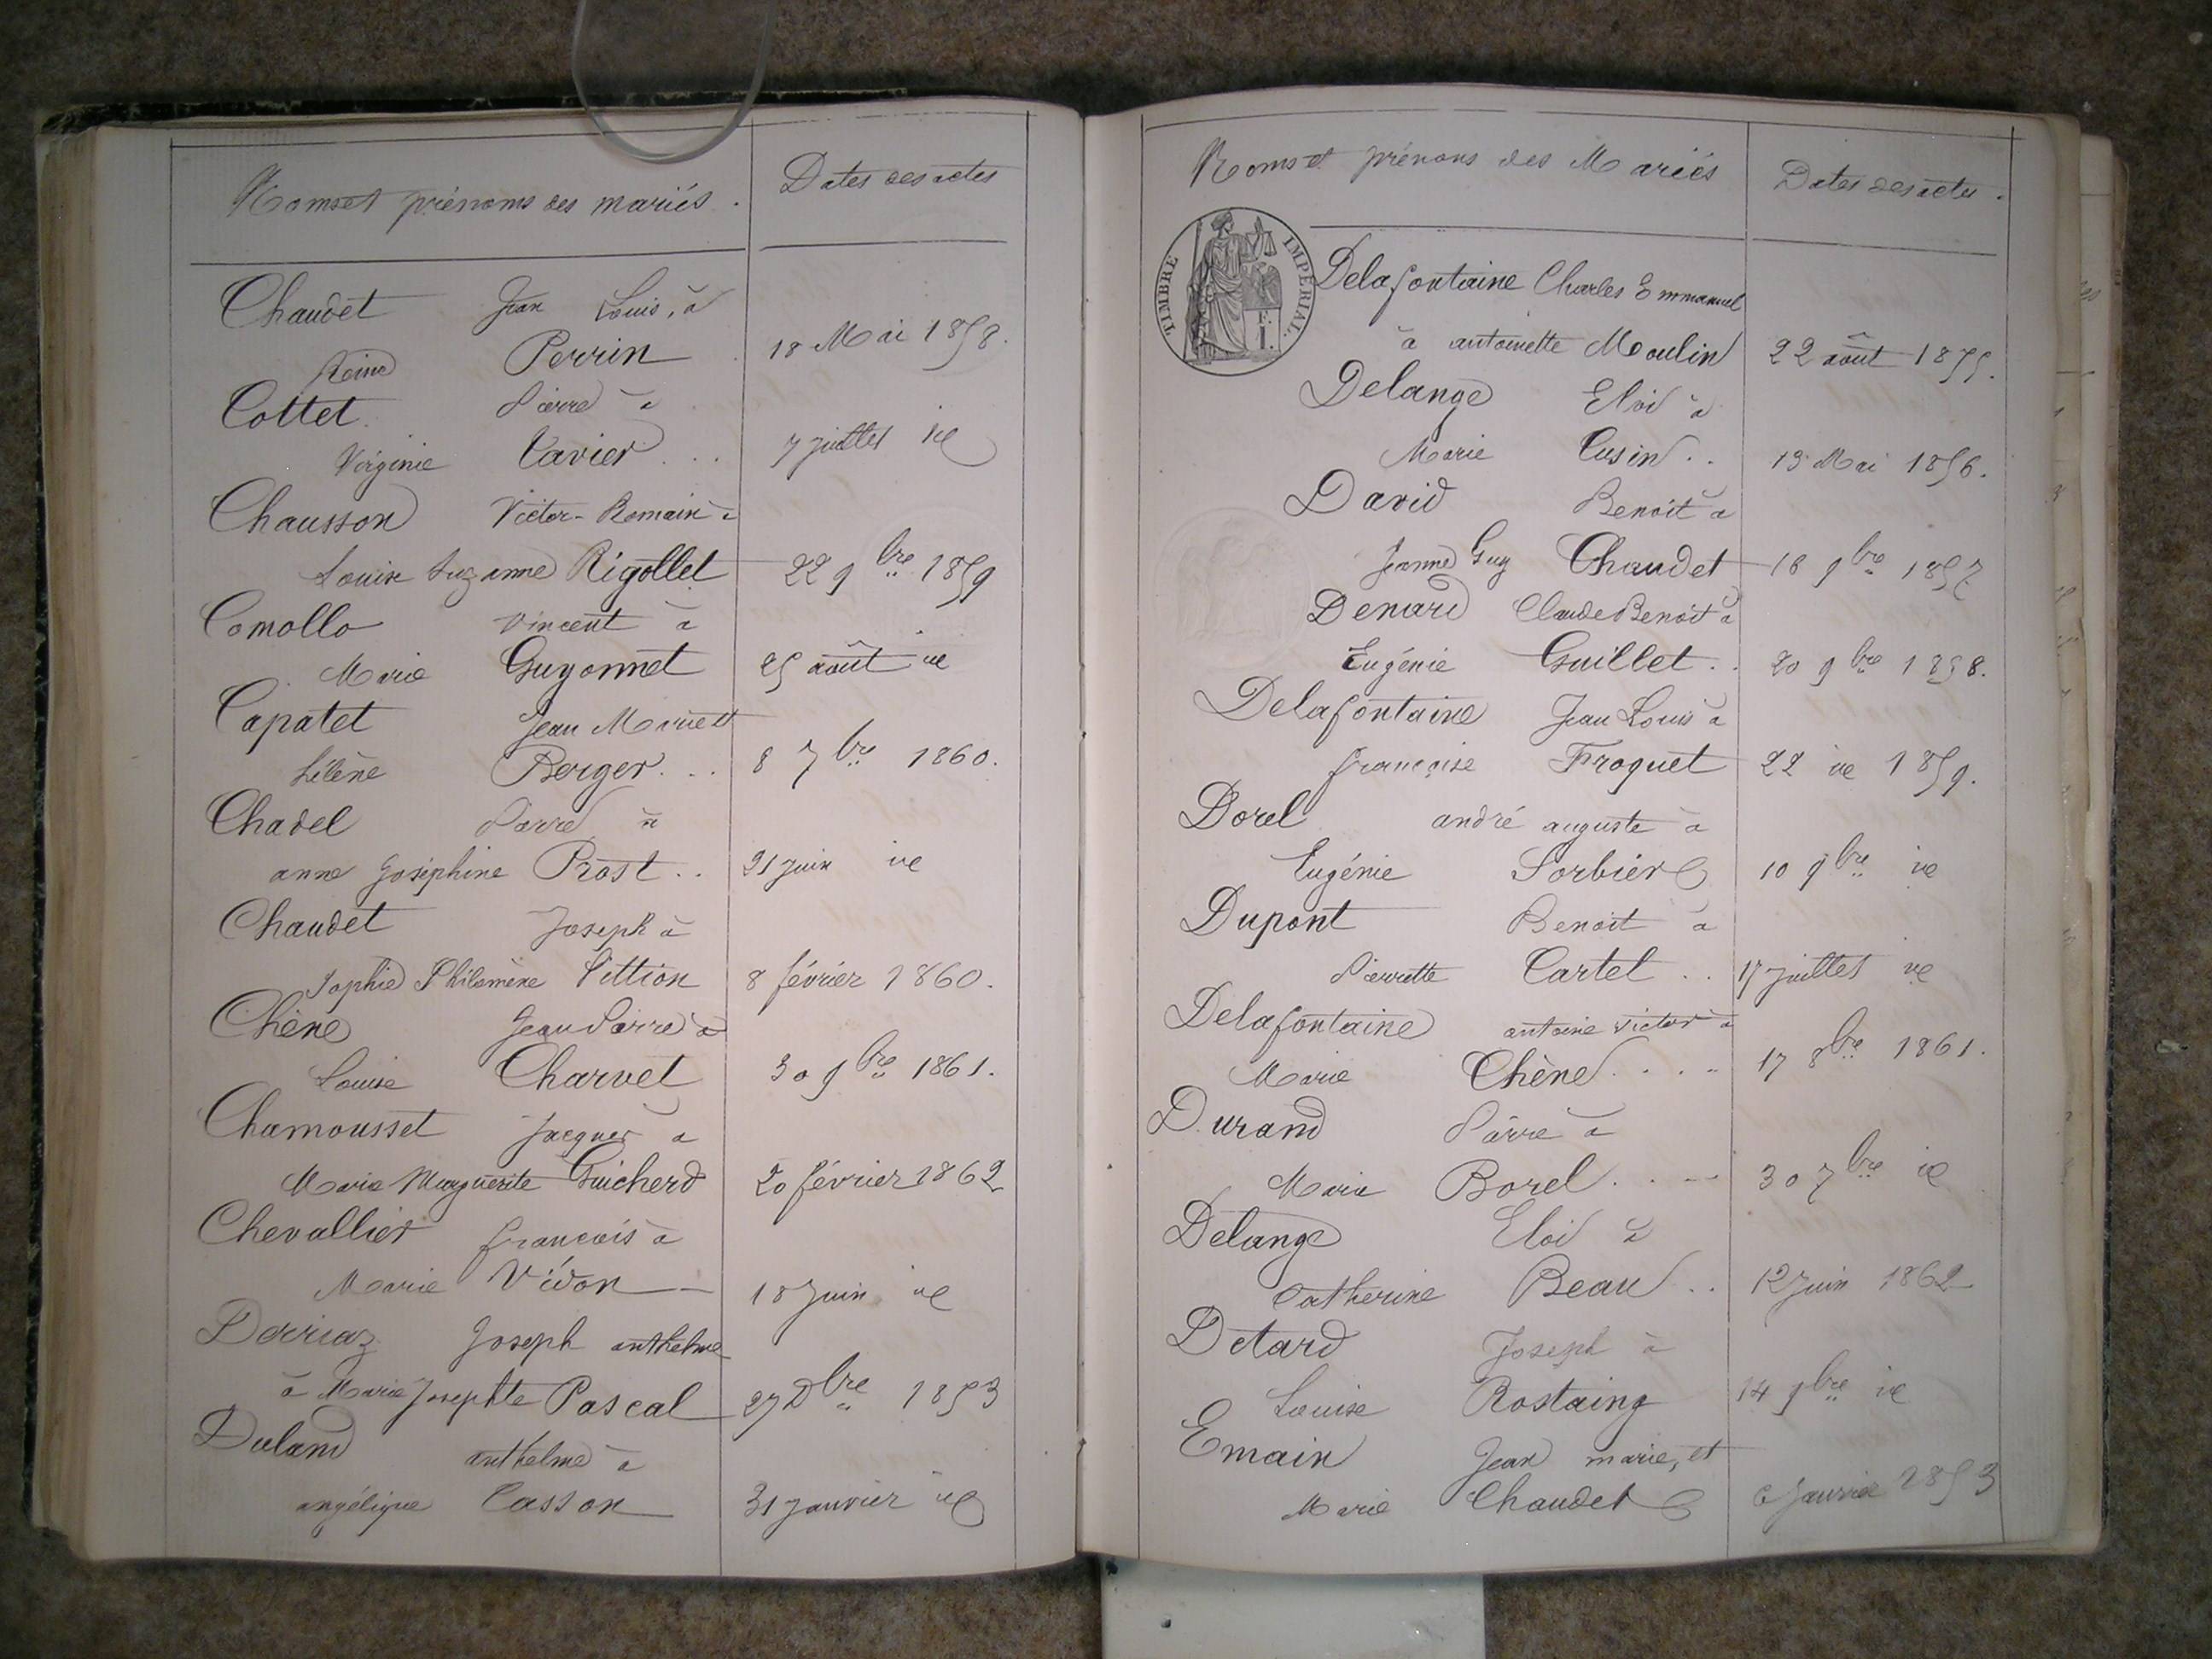 Noms et prénoms des mariés.
Dates des actes
Chaudet Jean Louis, à
Reine Perrin 18 Mai 1858.
Cottet Pierre à
Virginie Cavier... 7 juillet id
Chausson Victor-Romain à
Louise Suzanne Rigollet 22 9bre 1859
Comollo Vincent à
Marie Guyonnet 25 août id
Capatet Jean Marie et
hélène Berger... 8 7bre 1860.
Chadel Pierre à
anne Joséphine Prost.. 21 juin id
Chaudet Joseph à
Sophie Philomène Pittion 8 février 1860.
Chêne Jean Pierre à
Louise Charvet 30 9bre 1861.
Chamousset Jacques à
Marie Marguerite Guicherd 20 février 1862
Chevallier françois à
Marie Vidon 18 Juin id
Derriaz Joseph anthelme
à Marie Josephte Pascal 27 Dbre 1853
Duland anthelme à
angélique Casson 31 janvier id
Noms et prénoms des Mariés
Dates des actes.
TIMBRE IMPÉRIAL.
Delafontaine Charles Emmanuel
à antoinette Moulin 22 août 1855.
Delange Eloi à
Marie Cusin.. 13 Mai 1856.
David Benoit à
Jeanne Guy Chaudet 18 9bre 1857
Denard Claude Benoit à
Eugénie Guillet.. 20 9bre 1858.
Delafontaine Jean Louis à
françoise Froquet 22 id 1859.
Dorel andré auguste à
Eugénie Sorbier 10 9bre id
Dupont Benoit à
Pierrette Cartet.. 17 juillet id
Delafontaine antoine victor à
Marie Chêne.... 17 8bre 1861.
Durand Pierre à
Marie Borel.... 30 7bre id
Delange Eloi à
Catherine Beau.. 12 Juin 1862
Detard Joseph à
Louise Rostaing 14 9bre id
Emain Jean marie, et
Marie Chaudet 6 Janvier 1853